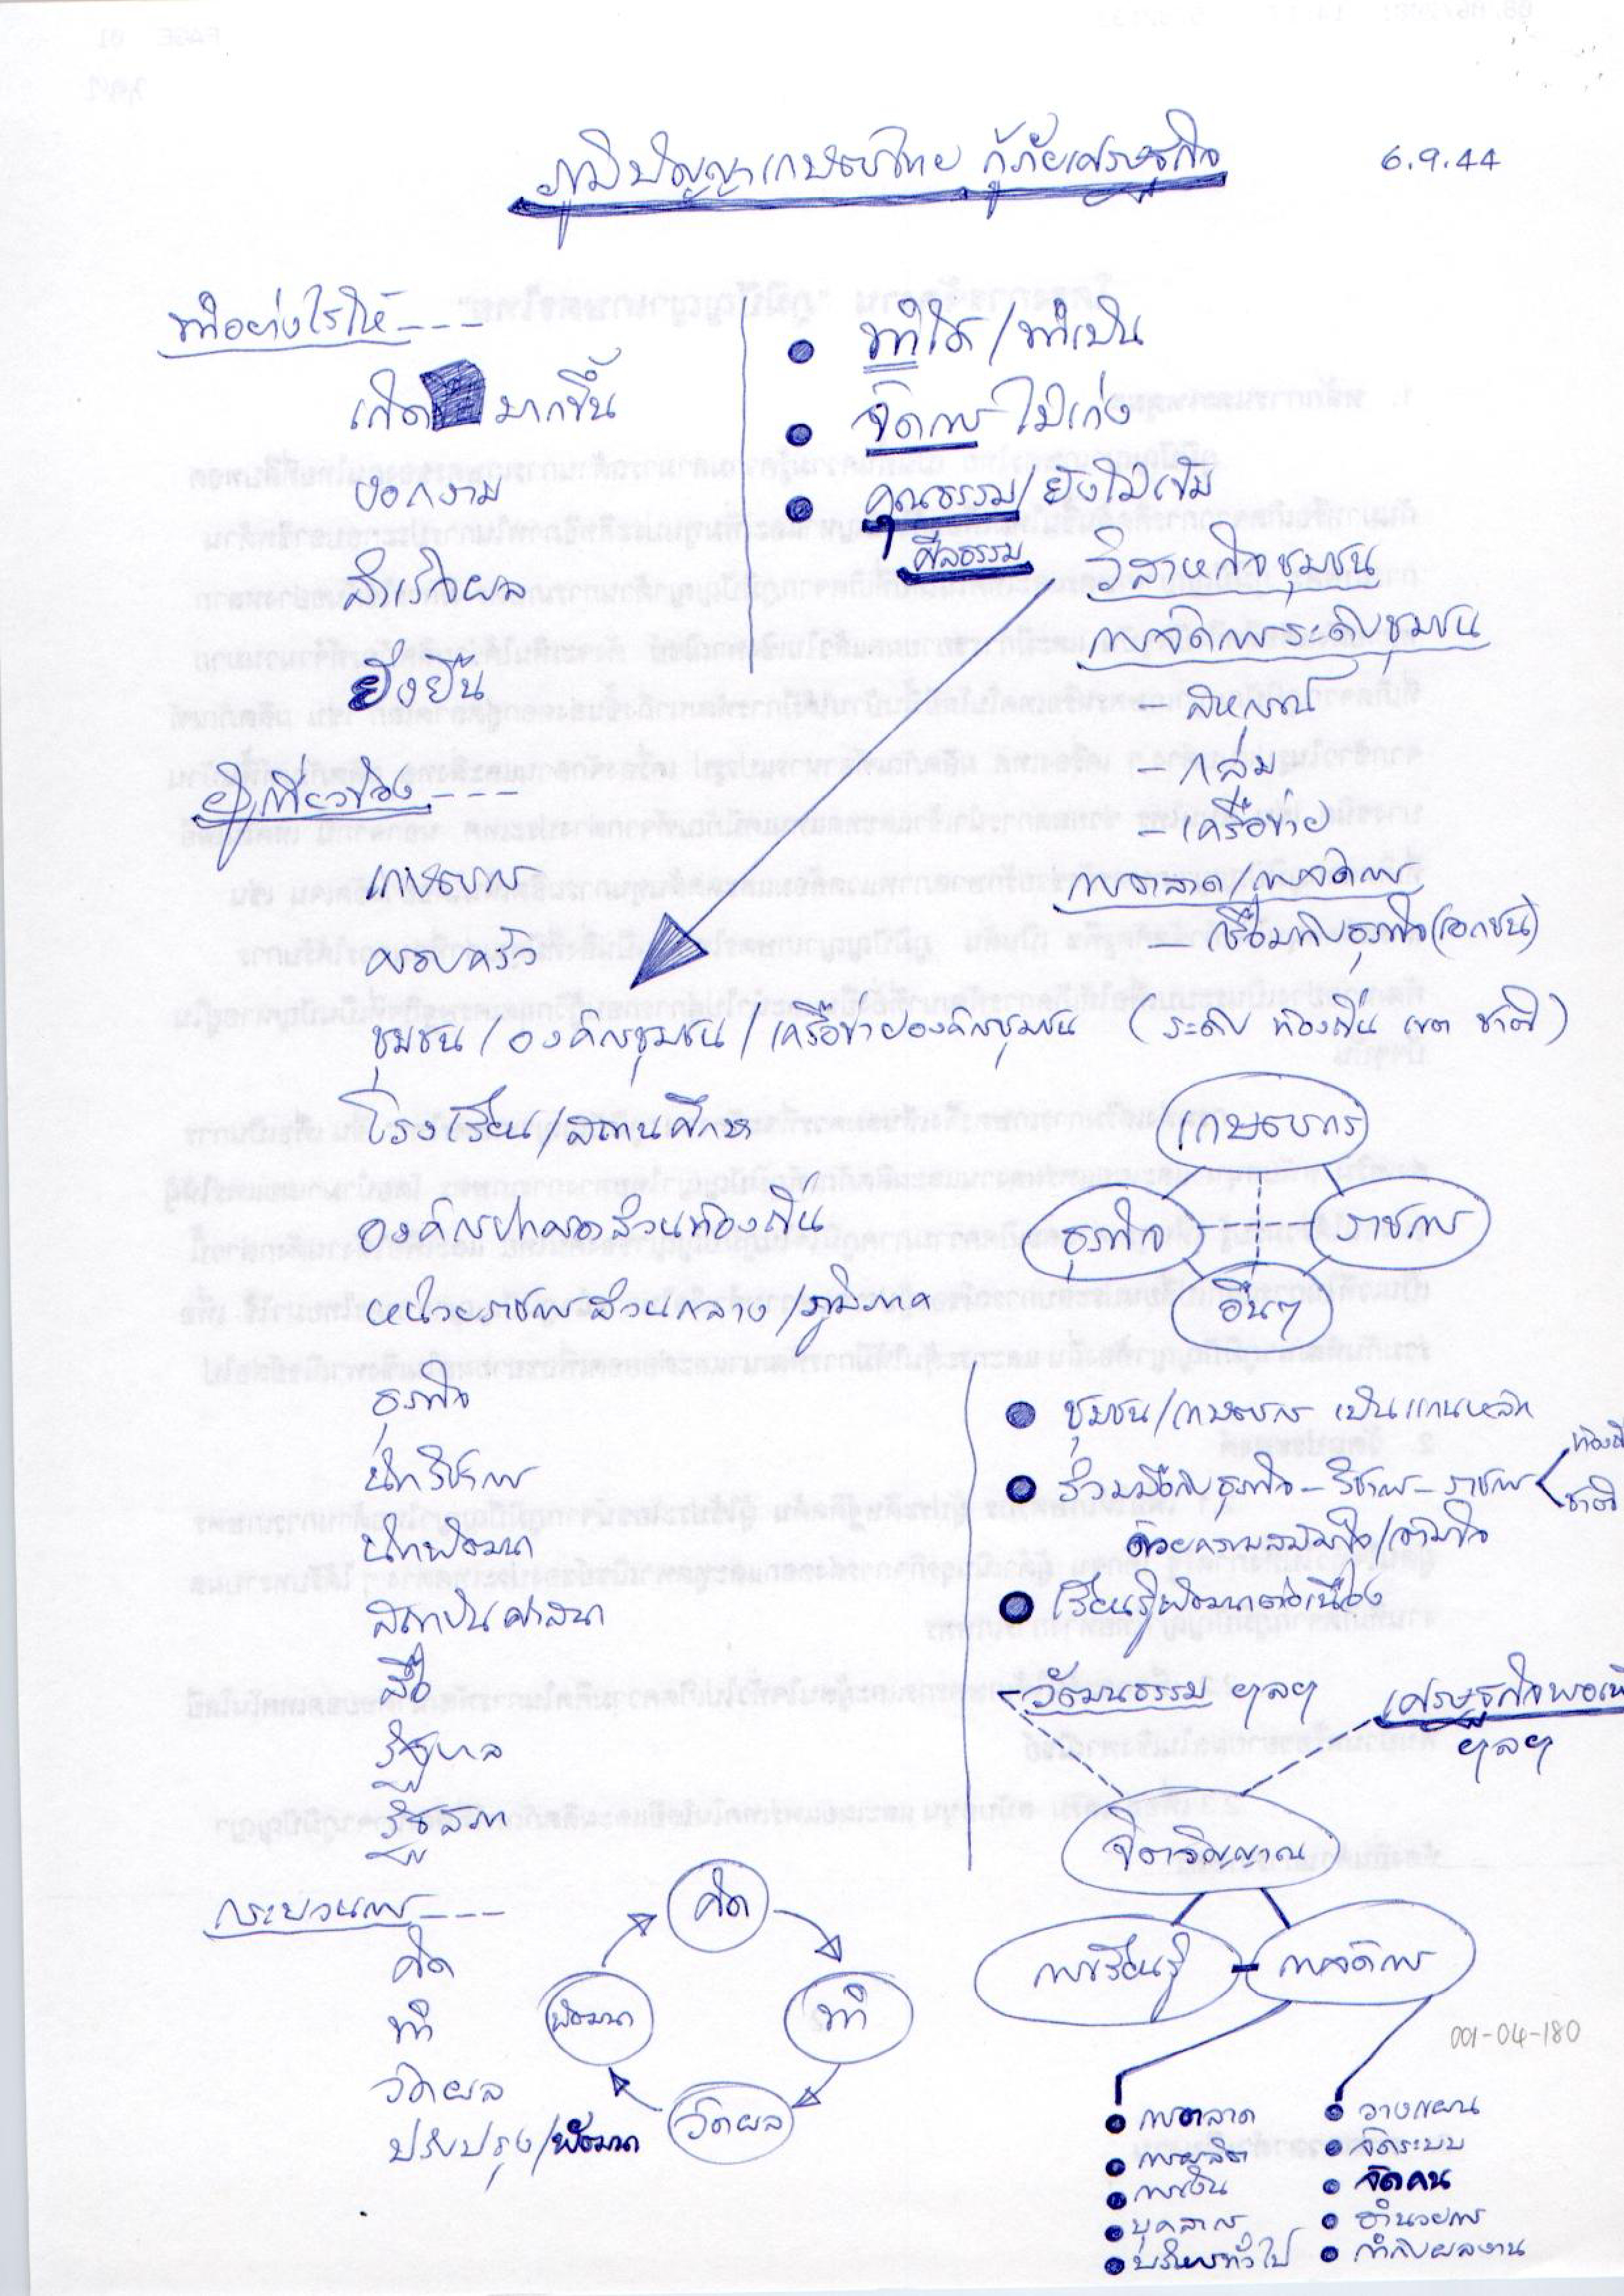 ภูมิปัญญาเกษตรไทย กู้ภัยเศรษฐกิจ
6.9.44
ทำอย่างไรให้ ---
เกิด มากขึ้น
งอกงาม
สำเร็จผล
ยั่งยืน
● ทำได้ / ทำเป็น
● จัดการ ไม่เก่ง
● คุณธรรม / ยังไม่เข้ม
ศีลธรรม
วิสาหกิจชุมชน
การจัดการระดับชุมชน
- สหกรณ์
- กลุ่ม
- เครือข่าย
การตลาด / การจัดการ
- เชื่อมกับธุรกิจ (เอกชน)
ผู้เกี่ยวข้อง ---
เกษตรกร
ครอบครัว
ชุมชน / องค์กรชุมชน / เครือข่ายองค์กรชุมชน ( ระดับ ท้องถิ่น เขต ชาติ )
โรงเรียน / สถานศึกษา
องค์กรปกครองส่วนท้องถิ่น
หน่วยราชการส่วนกลาง / ภูมิภาค
ธุรกิจ
นักวิชาการ
นักพัฒนา
สถาบันศาสนา
สื่อ
รัฐบาล
รัฐสภา
เกษตรกร
ธุรกิจ
ราชการ
อื่นๆ
● ชุมชน / เกษตรกร เป็นแกนหลัก
● ร่วมมือกับธุรกิจ - วิชาการ - ราชการ
ชาติ
ด้วยความสมัครใจ / เต็มใจ
● เรียนรู้พัฒนาต่อเนื่อง
วัฒนธรรม ฯลฯ
เศรษฐกิจพอเพี
ฯลฯ
จิตวิญญาณ
การเรียนรู้
การจัดการ
กระบวนการ ---
คิด
ทำ
วัดผล
ปรับปรุง / พัฒนา
คิด
ทำ
วัดผล
พัฒนา
001-04-180
● การตลาด
● การผลิต
● การเงิน
● บุคลากร
● บริหารทั่วไป
● วางแผน
● จัดระบบ
● จัดคน
● อำนวยการ
● กำกับผลงาน